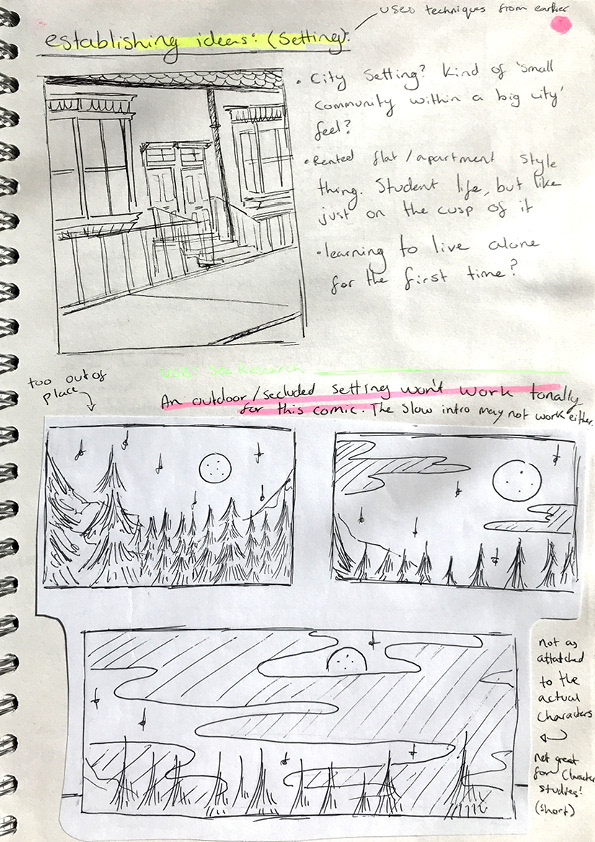 used techniques from earlier
establishing ideas: (Setting):
• City Setting? Kind of 'small
community within a big city'
feel?
• Rented flat/apartment style
thing. Student life, but like
just on the cusp of it
• learning to live alone
for the first time?
See Research
too out of
place
An outdoor/secluded setting won't work tonally
for this comic. The slow intro may not work either.
not as
attatched
to the
actual
characters
not great
for Character
studies!
(short)